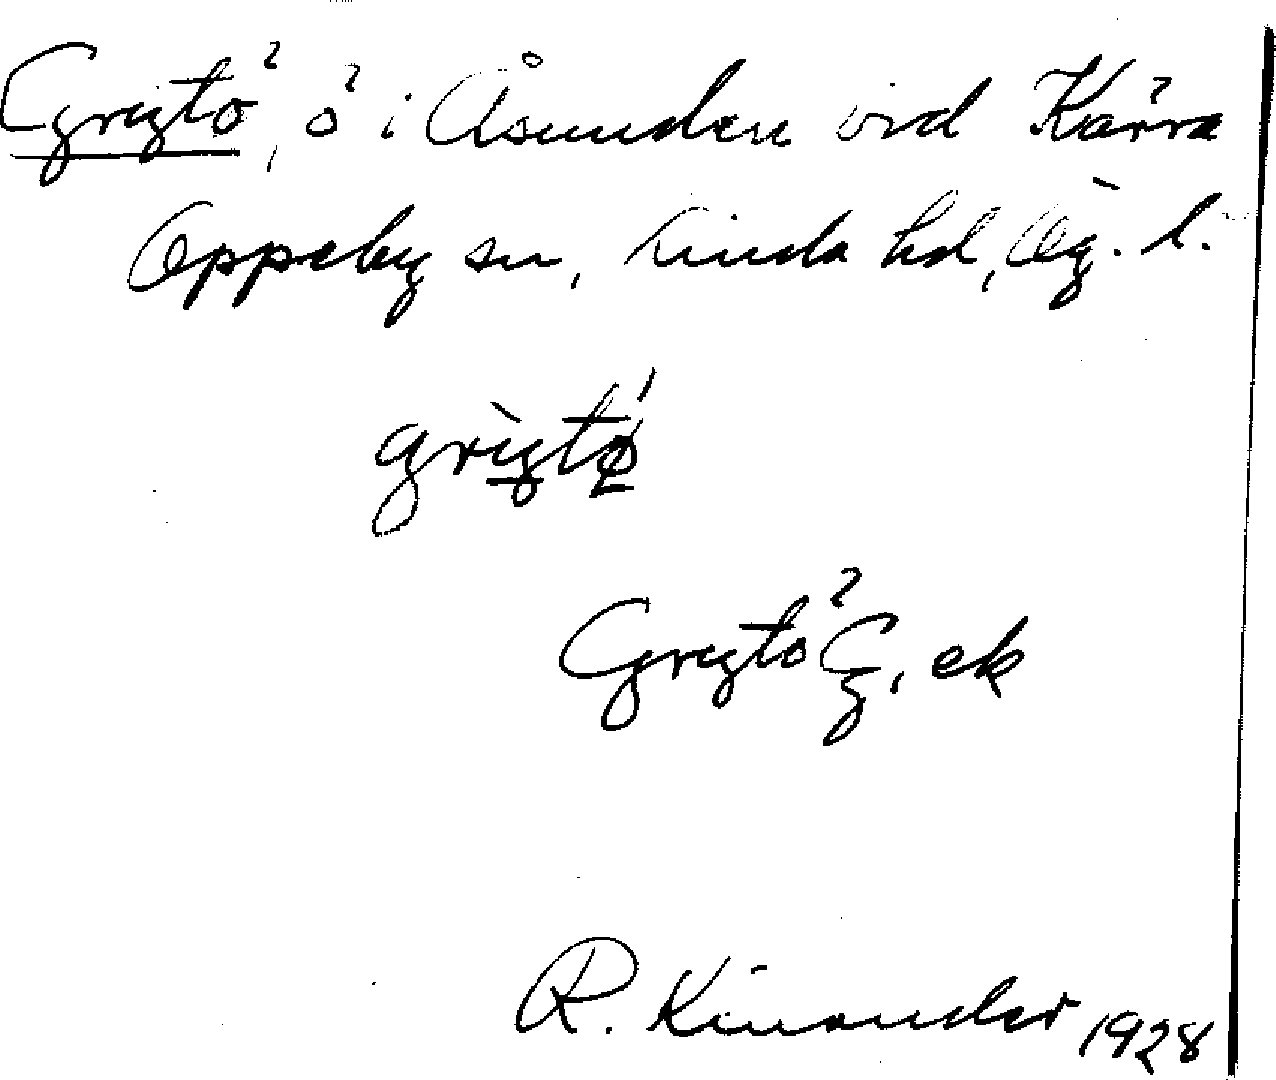 Grytö, ö i Åsunden vid Kärra
Oppeby sn, Kinda hd, Ög. l.
grỳtǿ
Grytö G, ek
R. Kinander 1928